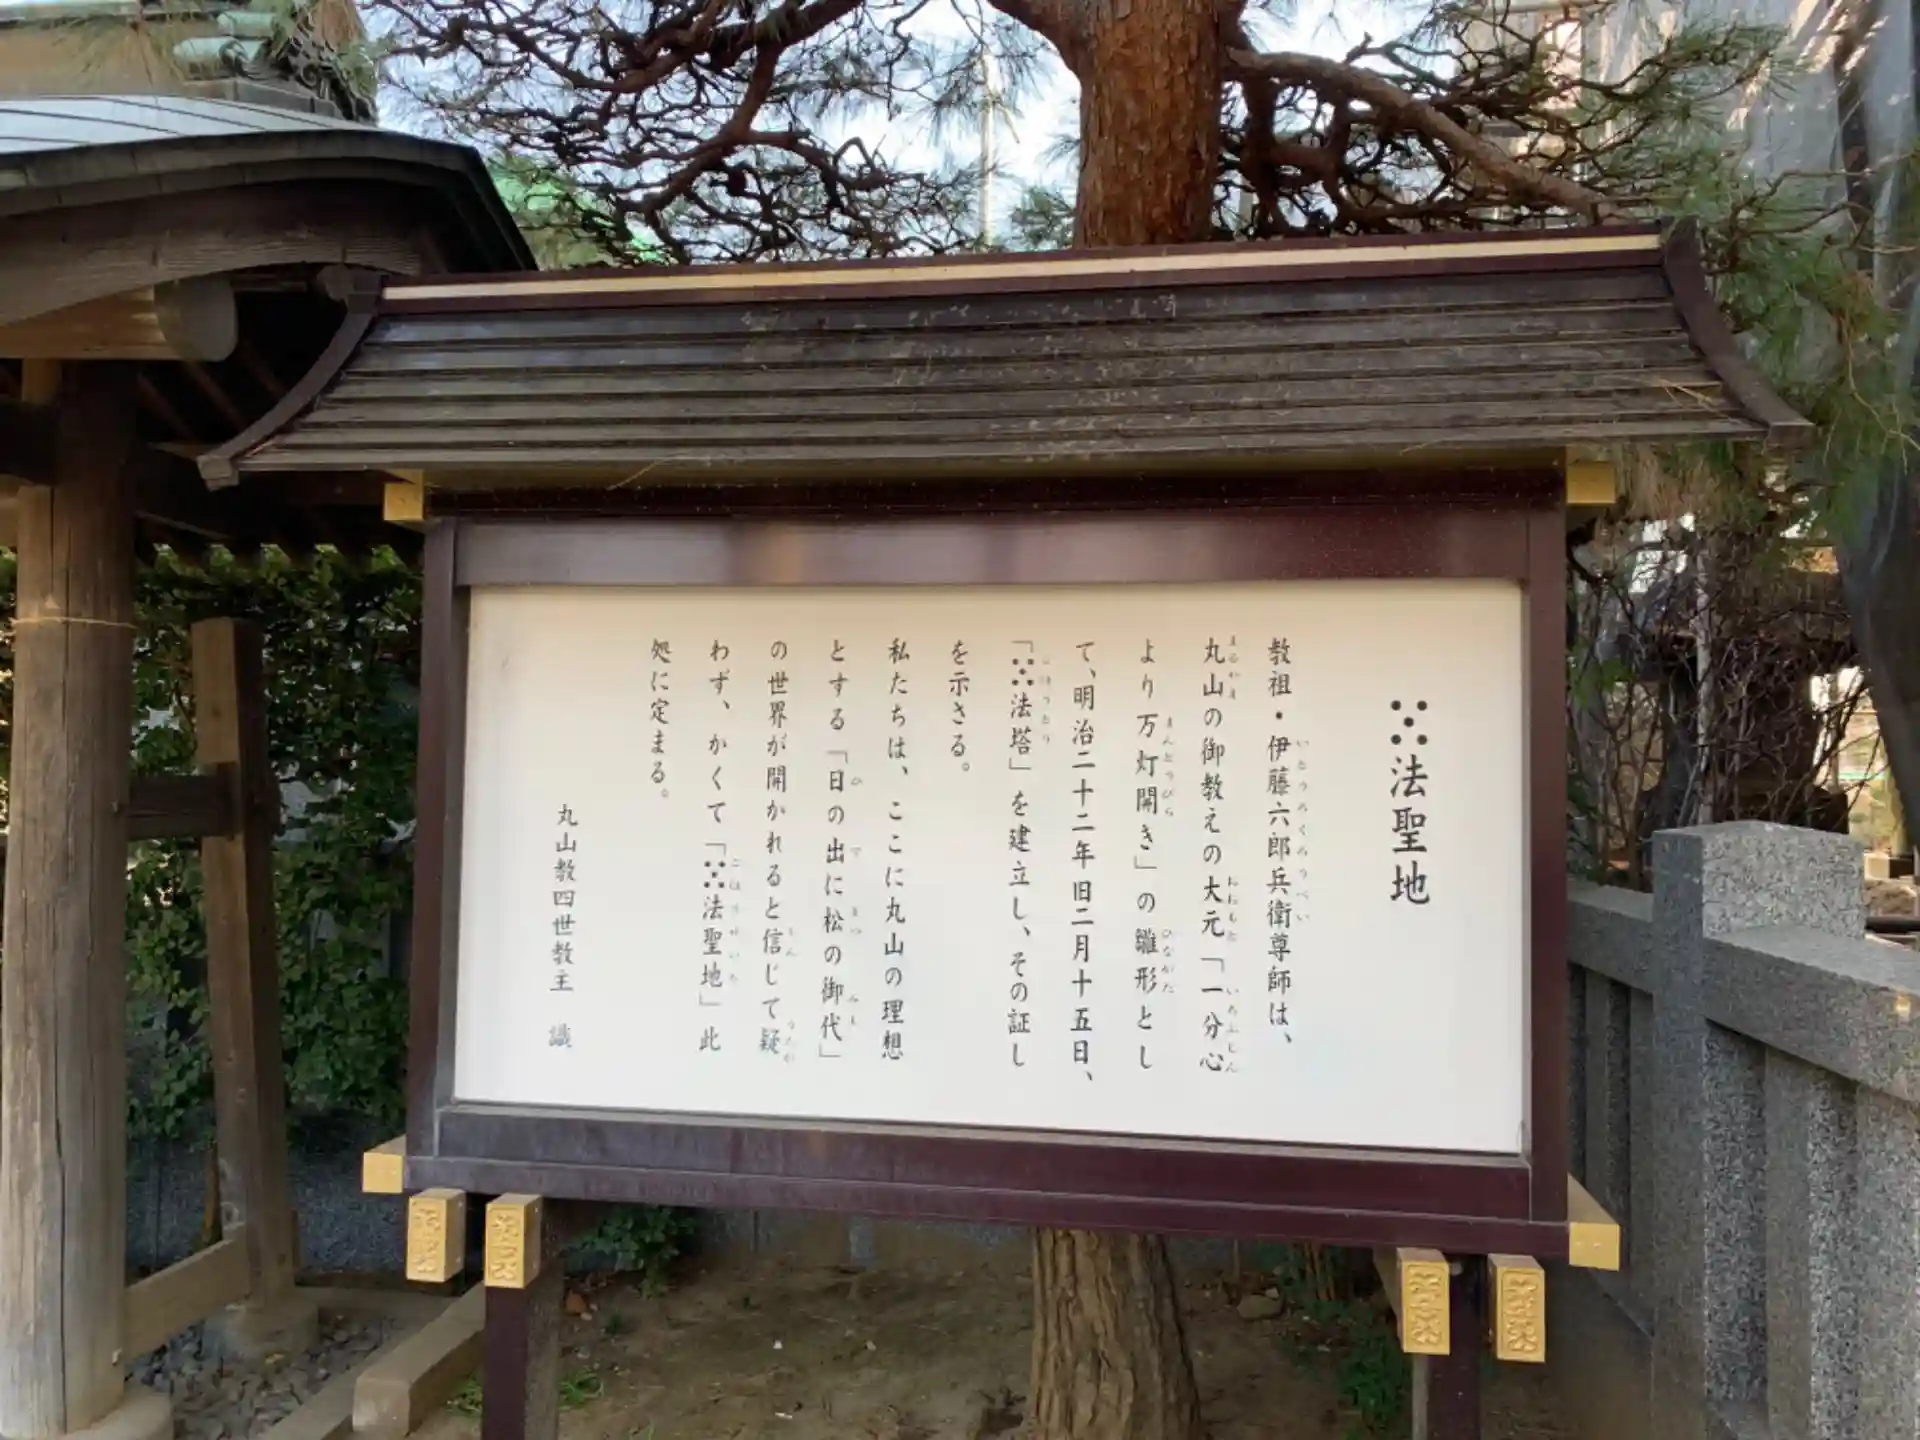 ⁙法聖地
教祖・伊藤六郎兵衛尊師は、
丸山の御教えの大元「一分心
より万灯開き」の雛形とし
て、明治二十二年旧二月十五日、
「⁙法塔」を建立し、その証し
を示さる。
私たちは、ここに丸山の理想
とする「日の出に松の御代」
の世界が開かれると信じて疑
わず、かくて「⁙法聖地」此
処に定まる。
丸山教四世教主 識